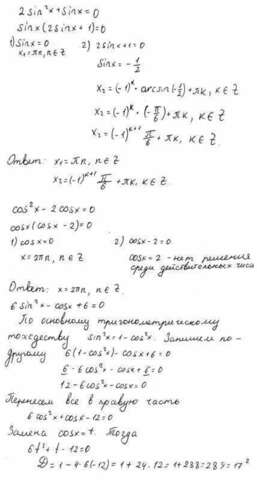 2sin²x+sinx=0
sinx(2sinx+1)=0
1) sinx=0 2) 2sinx+1=0
x₁=πn, n∈Z sinx=-1/2
x₂=(-1)ᵏ·arcsin(-1/2)+πk, k∈Z
x₂=(-1)ᵏ·(-π/6)+πk, k∈Z
x₂=(-1)ᵏ⁺¹ π/6+πk, k∈Z.
Ответ: x₁=πn, n∈Z
x₂=(-1)ᵏ⁺¹ π/6+πk, k∈Z.
cos²x-2cosx=0
cosx(cosx-2)=0
1) cosx=0 2) cosx-2=0
x=2πn, n∈Z cosx=2 - нет решения
среди действительных чисел
Ответ: x=2πn, n∈Z.
6sin²x-cosx+6=0
По основному тригонометрическому
тождеству sin²x=1-cos²x. Запишем по-
другому 6(1-cos²x)-cosx+6=0
6-6cos²x-cosx+6=0
12-6cos²x-cosx=0
Перенесем все в правую часть
6cos²x+cosx-12=0
Замена cosx=t. Тогда
6t²+t-12=0
D=1-4·6(-12)=1+24·12=1+288=289=17²